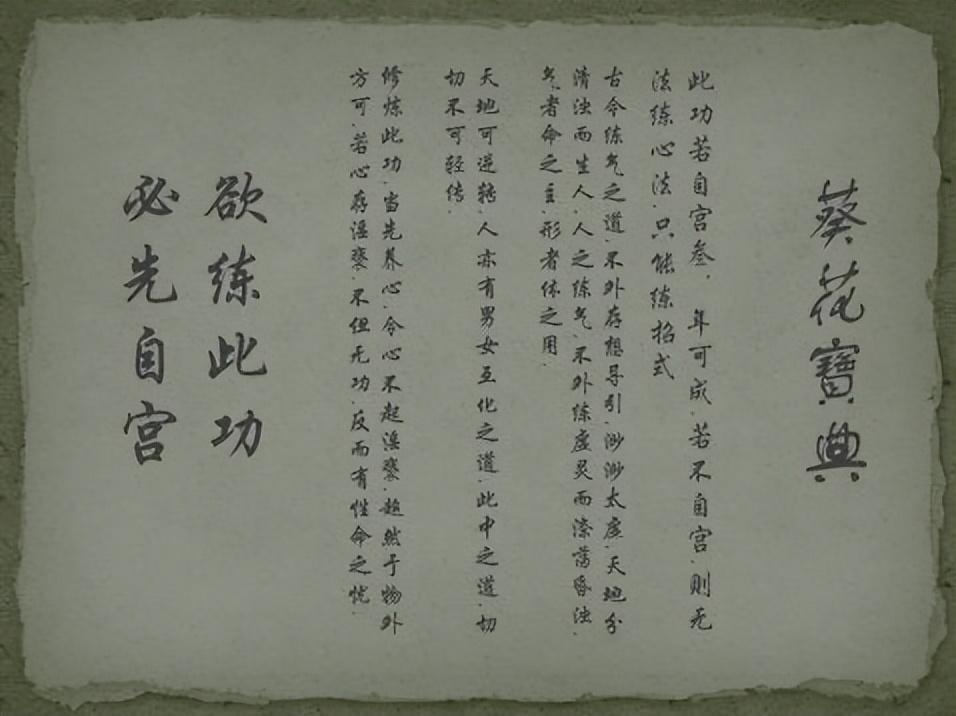 葵花寶典
此功若自宫叁，年可成，若不自宫，则无
法练心法，只能练招式
古今练气之道，不外存想导引，渺渺太虚，天地分
清浊而生人，人之练气，不外练虚灵而涤荡昏浊，
气者命之主，形者体之用．
天地可逆转，人亦有男女互化之道，此中之道，切
切不可轻传．
修炼此功，当先养心，令心不起淫亵，超然于物外
方可，若心存淫亵，不但无功，反而有性命之忧．
欲练此功
必先自宫